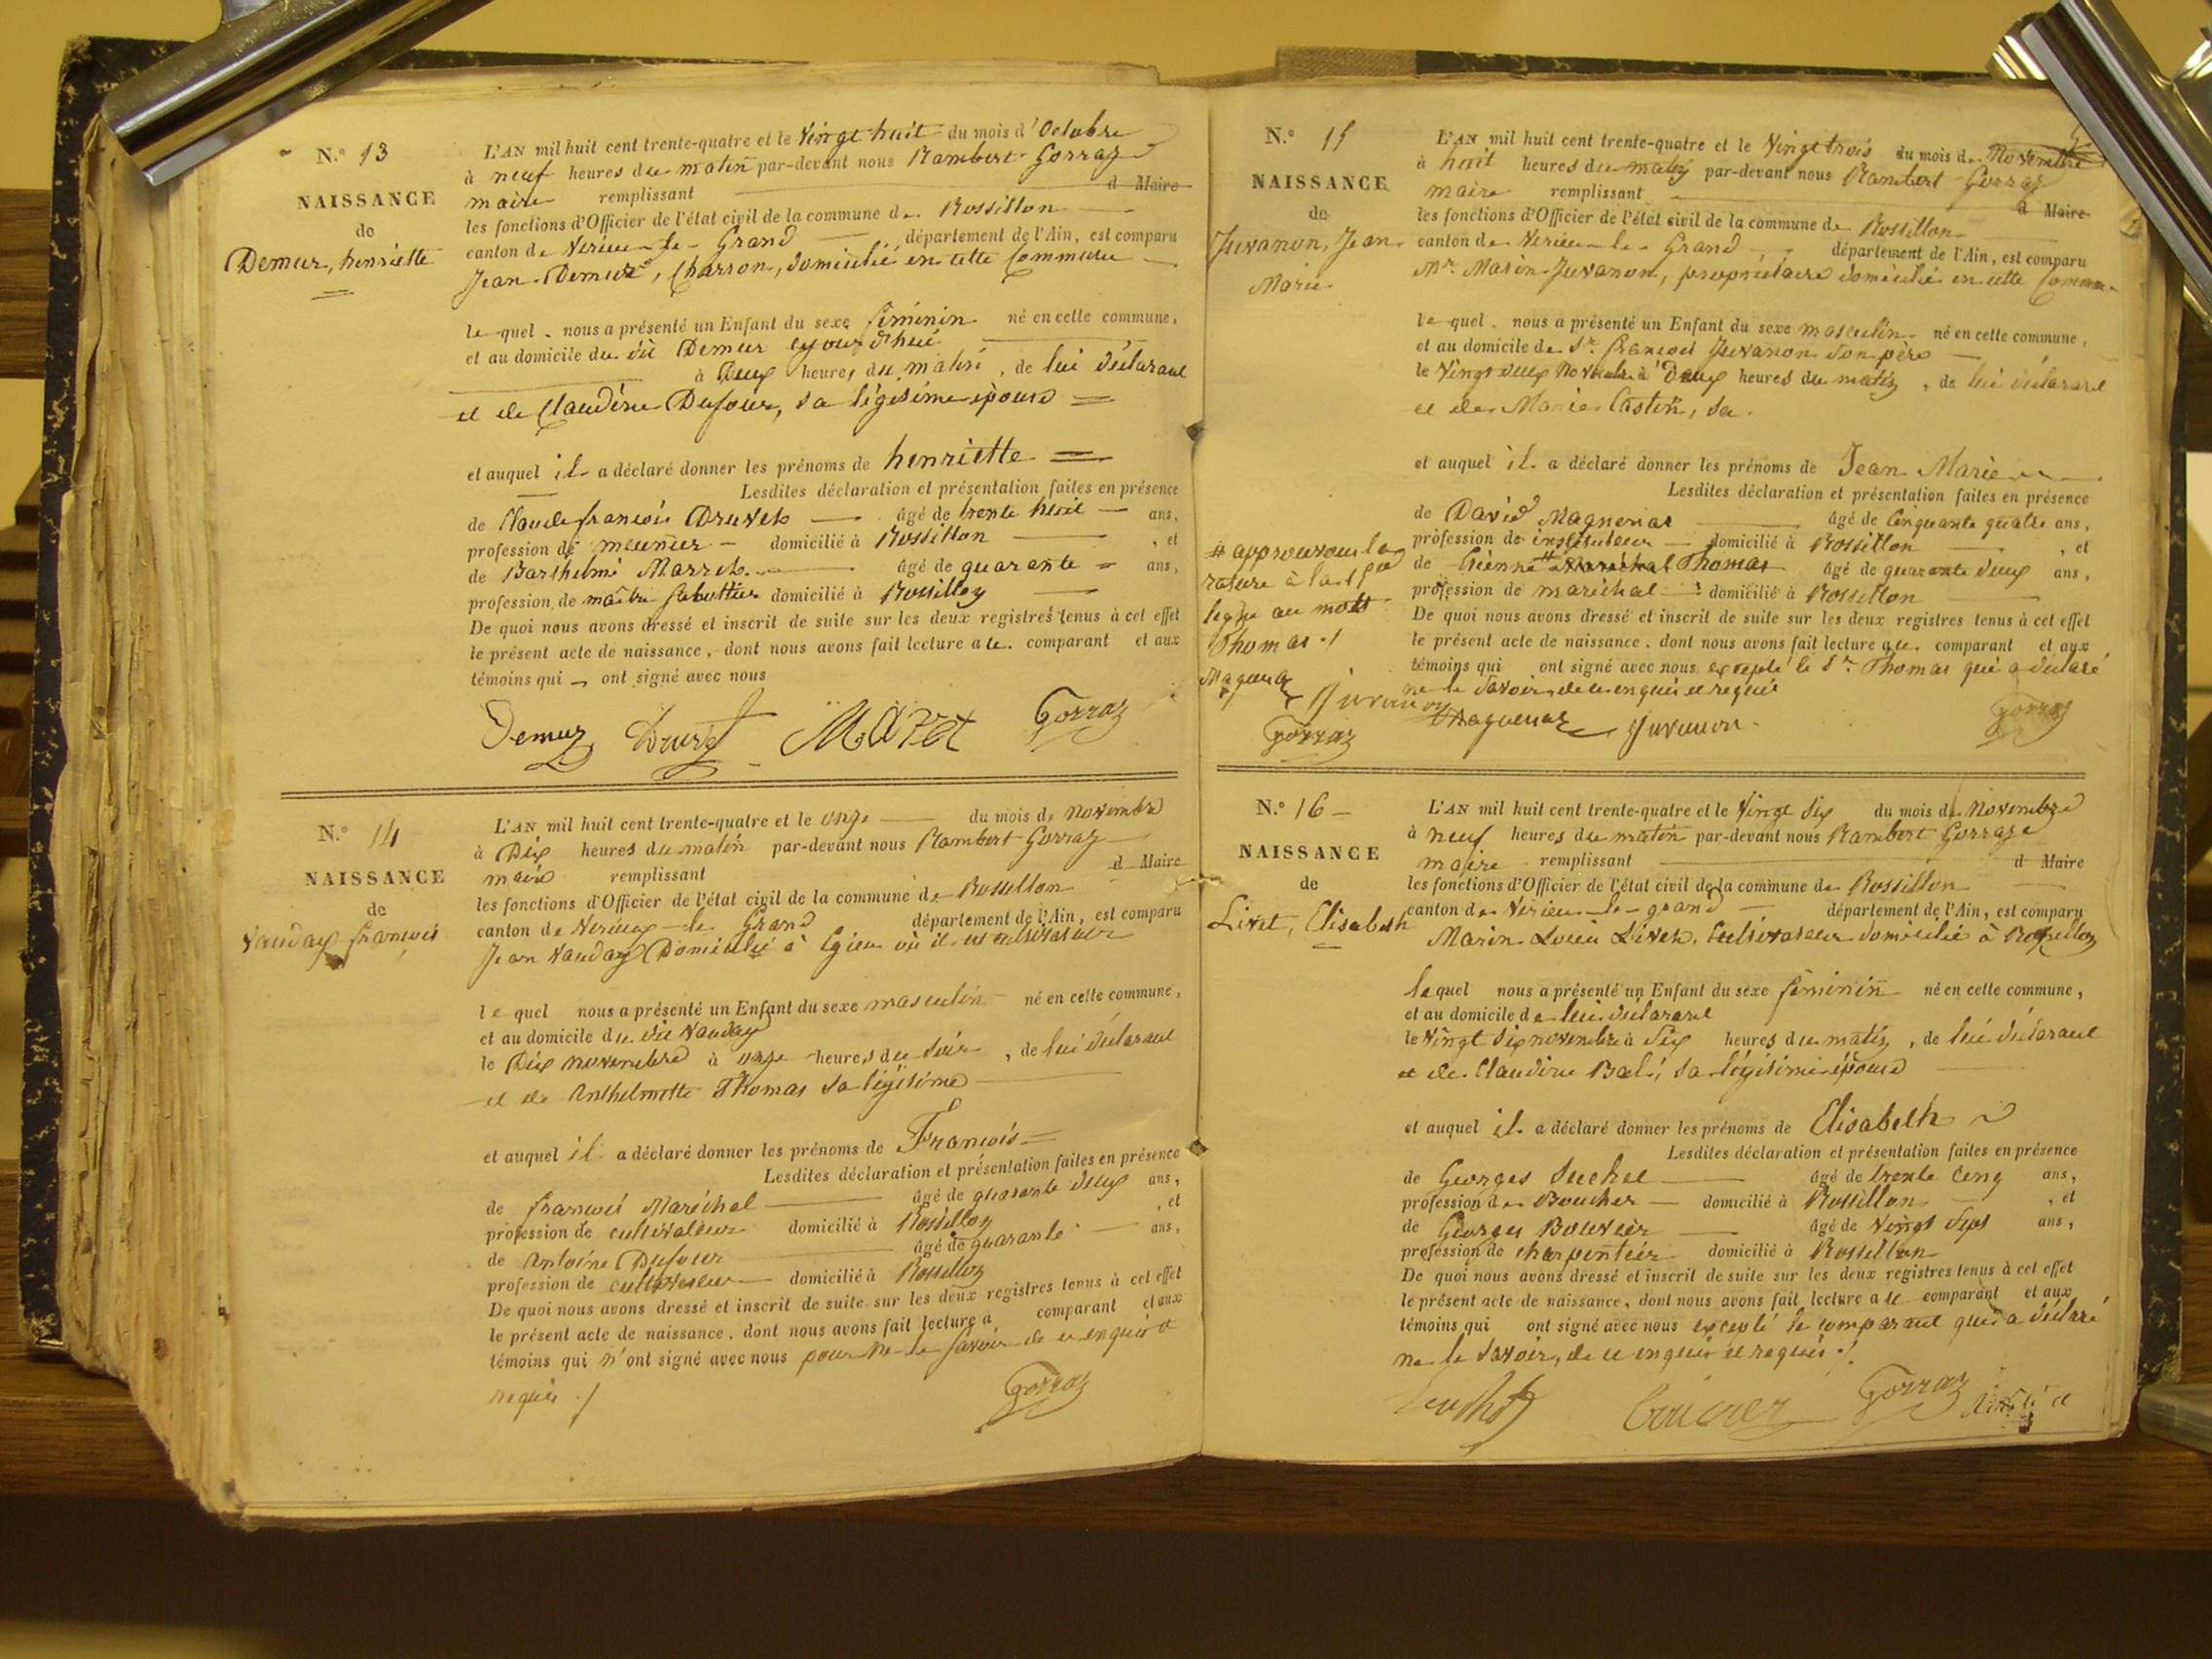 N.º 13
NAISSANCE
de
Demur, henriette
L'AN mil huit cent trente-quatre et le Vingt huit du mois d'Octobre
à neuf heures du matin par-devant nous Rambert Gorraz
maire remplissant d Maire
les fonctions d'Officier de l'état civil de la commune de Rossillon
canton de Virieu-le-Grand département de l'Ain, est comparu
Jean Demur, Charron, domicilié en cette Commune
lequel nous a présenté un Enfant du sexe féminin né en cette commune,
et au domicile du dit Demur ajourd'hui
à Deux heures du matin, de lui déclarant
et de Claudine Dufour, sa légitime épouse
et auquel il a déclaré donner les prénoms de henriette
Lesdites déclaration et présentation faites en présence
de Claude françois Druvet âgé de trente huit ans,
profession de meunier domicilié à Rossillon, et
de Barthelmi Marret âgé de quarante ans,
profession de maître sabottier domicilié à Rossillon
De quoi nous avons dressé et inscrit de suite sur les deux registres tenus à cet effet
le présent acte de naissance, dont nous avons fait lecture a le comparant et aux
témoins qui ont signé avec nous
Demur Gorraz
N.º 14
NAISSANCE
de
Vauday françois
L'AN mil huit cent trente-quatre et le onze du mois de novembre
à Dix heures du matin par-devant nous Rambert Gorraz
maire remplissant d Maire
les fonctions d'Officier de l'état civil de la commune de Rossillon
canton de Virieux-le-Grand département de l'Ain, est comparu
Jean Vauday Domicilié à Egieu où il est cultivateur
lequel nous a présenté un Enfant du sexe masculin né en cette commune,
et au domicile du dit Vauday
le Dix novembre à onze heures du soir, de lui déclarant
et de Anthelmette Thomas sa légitime
et auquel il a déclaré donner les prénoms de François
Lesdites déclaration et présentation faites en présence
de françois Maréchal âgé de quarante deux ans,
profession de cultivateur domicilié à Rossillon, et
de Antoine Dufour âgé de quarante ans,
profession de cultivateur domicilié à Rossillon
De quoi nous avons dressé et inscrit de suite sur les deux registres tenus à cet effet
le présent acte de naissance, dont nous avons fait lecture a comparant et aux
témoins qui n'ont signé avec nous pour ne le savoir de ce enquis et
requis ./
Gorraz
N.º 15
NAISSANCE
de
Juvanon, Jean
Marie
L'AN mil huit cent trente-quatre et le Vingt trois du mois de Novembre
à huit heures du matin par-devant nous Rambert Gorraz
maire remplissant d Maire
les fonctions d'Officier de l'état civil de la commune de Rossillon
canton de Virieu-le-Grand département de l'Ain, est comparu
Mr. Marin Juvanon, propriétaire domicilié en cette Commune
lequel nous a présenté un Enfant du sexe masculin né en cette commune,
et au domicile de Sr. françois Juvanon son père
le Vingt deux Novembre à Deux heures du matin, de lui déclarant
et de Marie Castin, sa
et auquel il a déclaré donner les prénoms de Jean Marie
Lesdites déclaration et présentation faites en présence
de David Magnenat âgé de Cinquante quatre ans,
profession de instituteur domicilié à Rossillon, et
de Etienne # Maréchal Thomas âgé de quarante deux ans,
profession de maréchal domicilié à Rossillon
De quoi nous avons dressé et inscrit de suite sur les deux registres tenus à cet effet
le présent acte de naissance, dont nous avons fait lecture a le comparant et aux
témoins qui ont signé avec nous excepté le Sr. Thomas qui a déclaré
ne le savoir de ce enquis et requis
# approuvons la
rature à la
ligne au mot
Thomas ./
Juvanon
Gorraz
Juvanon
Gorraz
N.º 16
NAISSANCE
de
Livet, Elisabeth
L'AN mil huit cent trente-quatre et le Vingt six du mois de Novembre
à neuf heures du matin par-devant nous Rambert Gorraz
maire remplissant d Maire
les fonctions d'Officier de l'état civil de la commune de Rossillon
canton de Virieu-le-grand département de l'Ain, est comparu
Marin Louis Livet, Cultivateur domicilié à Rossillon
lequel nous a présenté un Enfant du sexe féminin né en cette commune,
et au domicile de lui déclarant
le Vingt six novembre à six heures du matin, de lui déclarant
et de Claudine Bali, sa légitime épouse
et auquel il a déclaré donner les prénoms de Elisabeth
Lesdites déclaration et présentation faites en présence
de Georges Suchet âgé de trente cinq ans,
profession de Boucher domicilié à Rossillon, et
de Georges Bouvier âgé de vingt sept ans,
profession de charpentier domicilié à Rossillon
De quoi nous avons dressé et inscrit de suite sur les deux registres tenus à cet effet
le présent acte de naissance, dont nous avons fait lecture a le comparant et aux
témoins qui ont signé avec nous excepté le comparant qui a déclaré
ne le savoir, de ce enquis et requis ./.
Gorraz